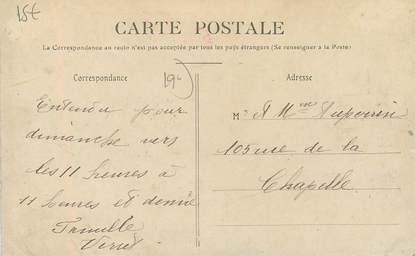 15t
CARTE POSTALE
La Correspondance au recto n'est pas acceptée par tous les pays étrangers (Se renseigner à la Poste)
Correspondance
19c
Adresse
Entendu pour
dimanche vers
les 11 heures à
11 heures et demie
Famille
M r & Mme Dupervier
105 rue de la
Chapelle